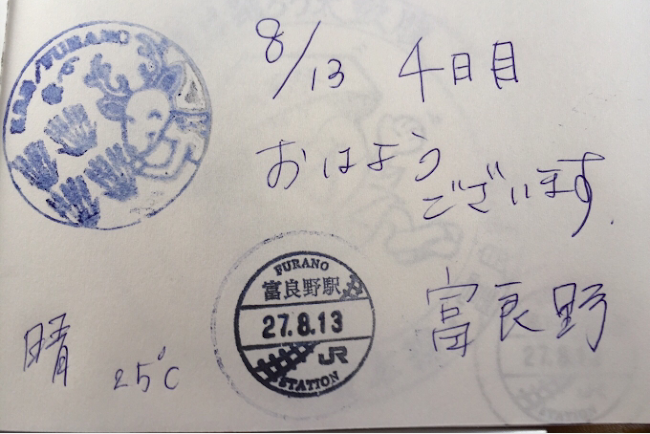 FURANO
8/13 4日目
おはよう
ございます.
FURANO
富良野駅
27.8.13
JR
STATION
富良野
晴 25℃